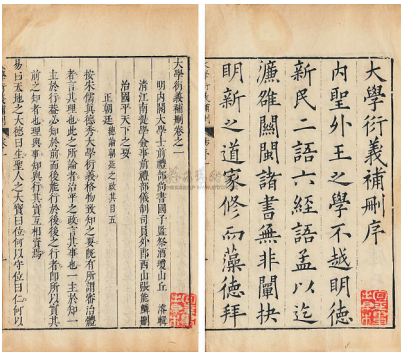 大學衍義補刪序
內聖外王之學不越明德
新民二語六經語孟以迄
濂雒關閩諸書無非闡抉
明新之道家修而藻德拜
大學衍義補刪卷之一
明內閣大學士前禮部尚書國子監祭酒瓊山丘濬輯
清江南提學僉事前禮部儀制司員外郎西山張能鱗刪
治國平天下之要
正朝廷總論朝廷之政其目五
按宋儒真德秀大學衍義格物致知之要既有所謂審治體
者言其理也此之所論者治平之政言其事也一主於知一
主於行蓋必知於前而後能行於後後之行者即所以實其
前之知者也理與事知與行其實互相資焉
易曰天地之大德曰生聖人之大寶曰位何以守位曰仁何以